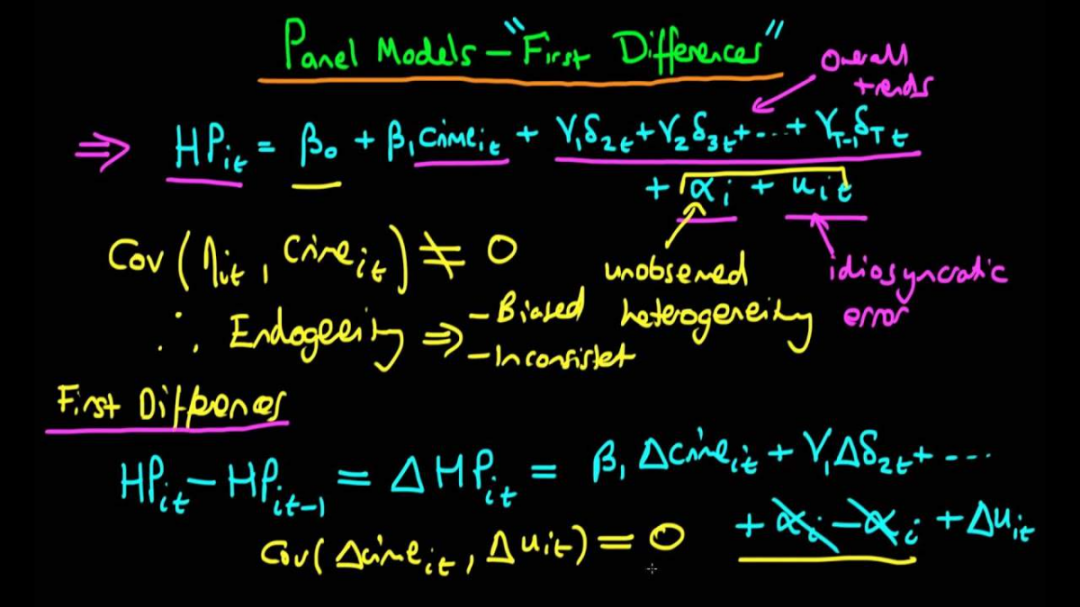 Panel Models - "First Differences"
Overall trends
⇒ HP_it = β_0 + β_1 Crime_it + γ_1 δ_2t + γ_2 δ_3t + ... + γ_T-1 δ_Tt
+ α_i + u_it
Cov(η_it, Crime_it) ≠ 0
unobserved heterogeneity
idiosyncratic error
∴ Endogeeity ⇒ - Biased
- Inconsistet
First Differences
HP_it - HP_it-1 = Δ HP_it = β_1 Δcrime_it + γ_1 Δδ_2t + ...
+ α_i - α_i + Δu_it
Cov(Δcrime_it, Δu_it) = 0